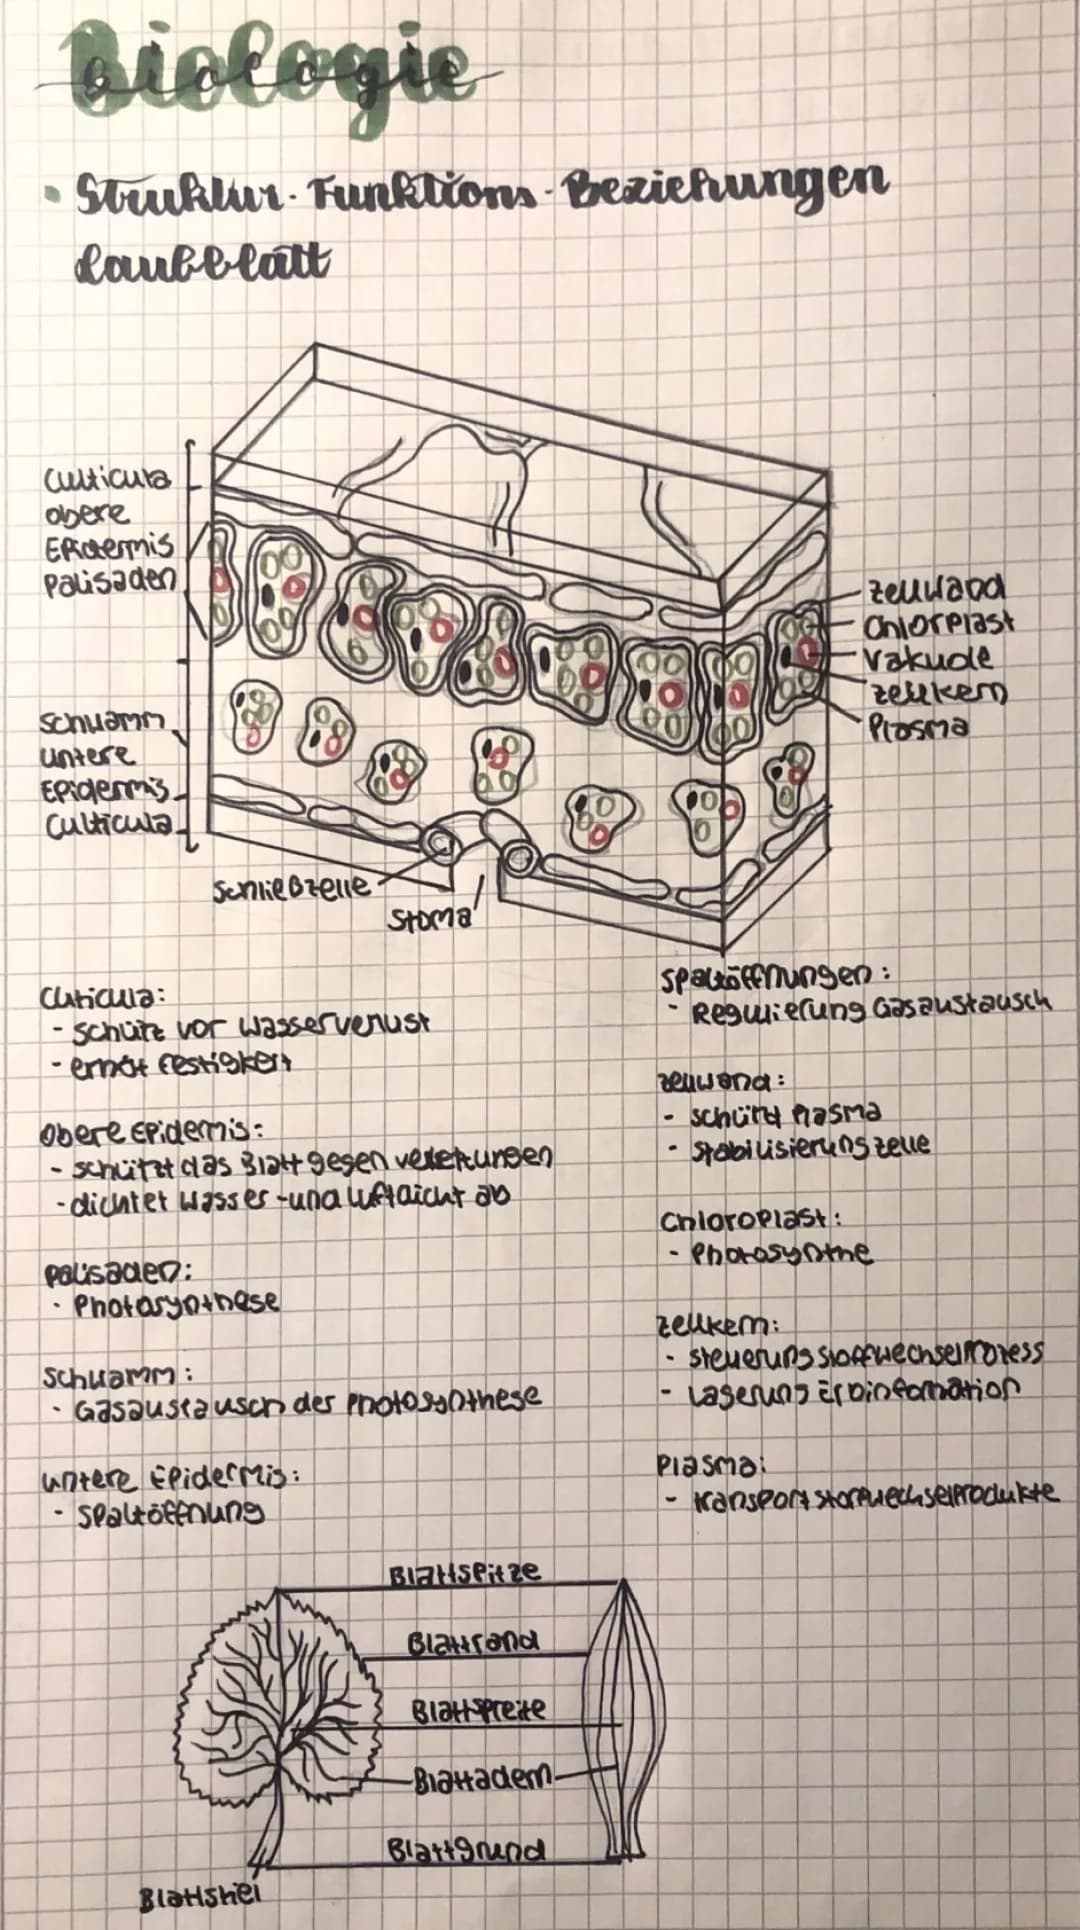 Biologie
biologie
• Struktur-Funktions-Beziehungen
Laubblatt
Culticula
obere
Epidermis
Palisaden
Schwamm
untere
Epidermis
Culticula
Zellwand
Chlorplast
Vakuole
Zellkern
Plasma
Schließzelle
Stoma
Cuticula:
- schütz vor Wasserverlust
- erhöt Festigkeit
Obere Epidermis:
- schützt das Blatt gegen verletzungen
- dichtet Wasser-und Luftdicht ab
Palisaden:
- Photosynthese
Schwamm:
- Gasaustausch der Photosynthese
untere Epidermis:
- Spaltöffnung
Spaltöffnungen:
- Regulierung Gasaustausch
Zellwand:
- schützt Plasma
- Stabilisierung Zelle
Chloroplast:
- Photosynthe
Zellkern:
- Steuerung Stoffwechselprozess
- Lagerung Erbinformation
Plasma:
- Transport Stoffwechselprodukte
Blattspitze
Blattrand
Blattspreite
Blattadern
Blattgrund
Blattstiel